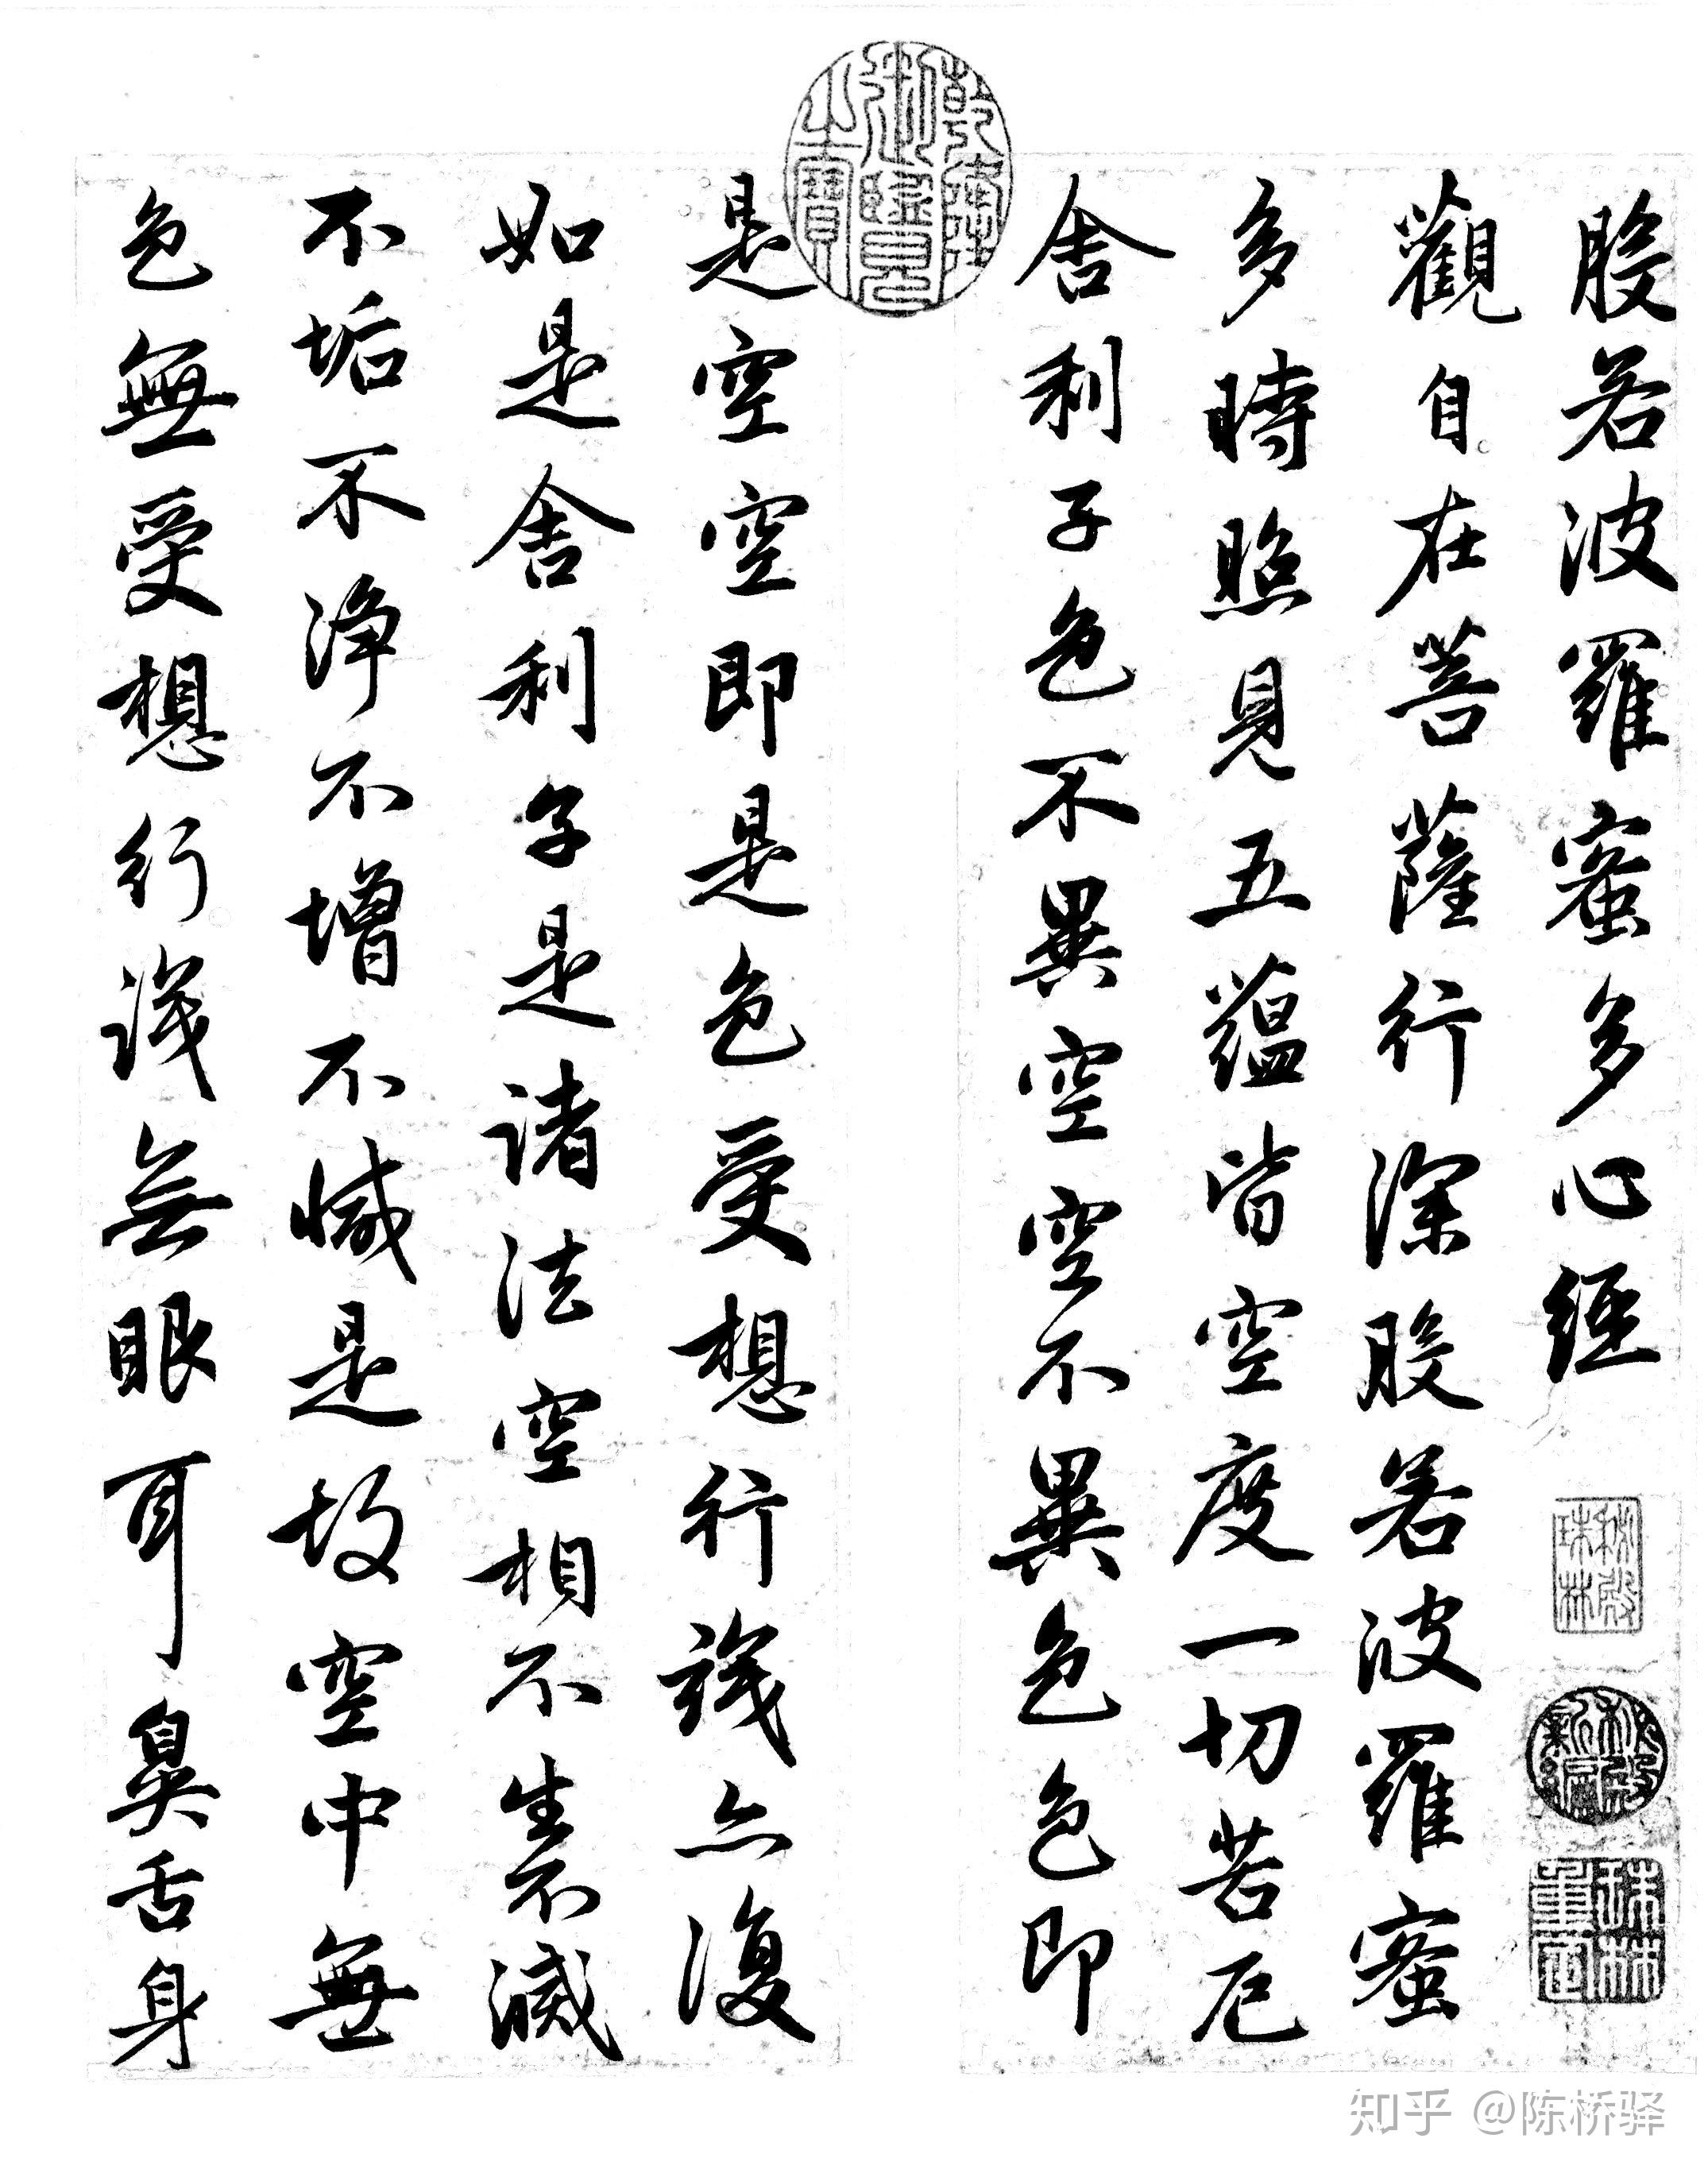 般若波羅蜜多心經
秘殿珠林
秘殿新編
珠林重定
觀自在菩薩行深般若波羅蜜
多時照見五蘊皆空度一切苦厄
舍利子色不異空空不異色色即
乾隆御覽之寶
是空空即是色受想行識亦復
如是舍利子是諸法空相不生不滅
不垢不淨不增不減是故空中無
色無受想行識無眼耳鼻舌身
知乎 @陈桥驿